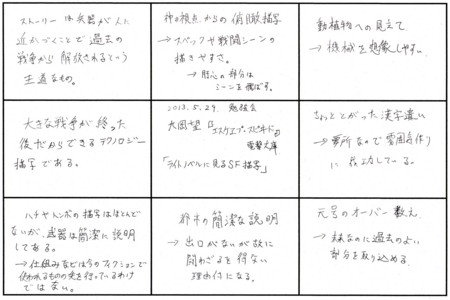 ストーリーは兵器が人に
近かづくことで過去の
戦争から解放されるという
王道なもの。
神の視点からの俯瞰描写
→スペックや戦闘シーンの
描きやすさ。
↳肝心の部分は
シーンを飛ばす。
動植物への見立て
→機械を想像しやすい。
大きな戦争が終った
後だからできるテクノロジー
描写である。
2013.5.29. 勉強会
大岡望『エスケヱプ・スピヰド』
電撃文庫
「ライトノベルに見るSF描写」
ちょっととがった漢字遣い
→要所なので雰囲気作り
に成功している。
ハチやトンボの描写はほとんど
ないが、武器は簡潔に説明
してある。
→仕組みなどは今のフィクションで
使われるものの先を行っているわけ
ではない。
都市の簡潔な説明
→出口がないが故に
闘わざるを得ない
理由付になる。
元号のオーバー数え
→未なのに過去のよい
部分を取り込める。